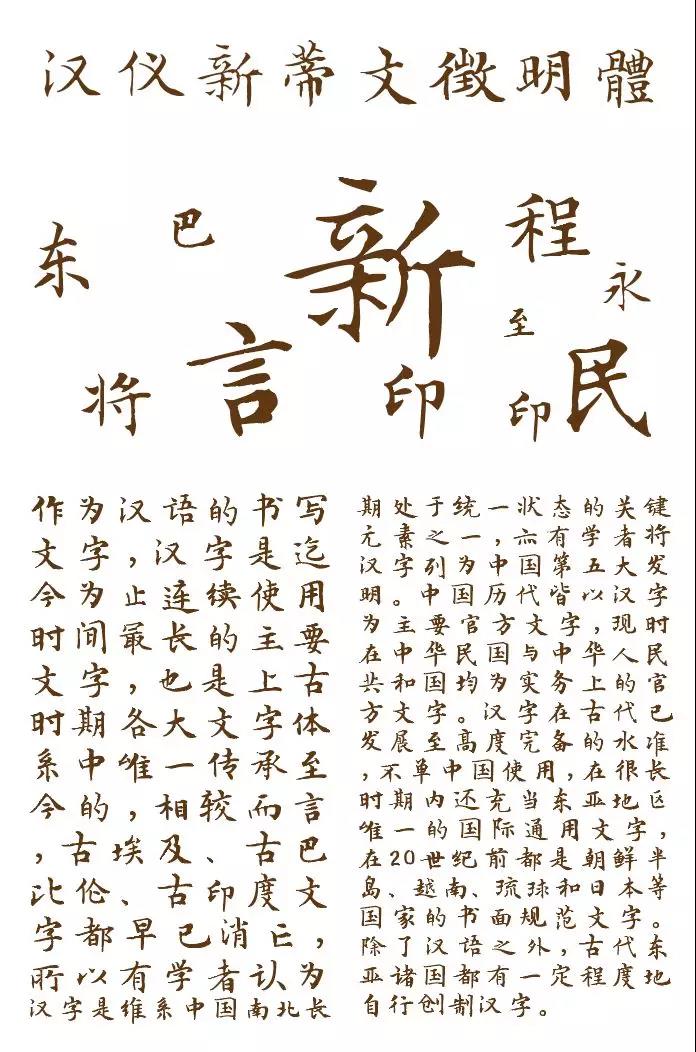 汉仪新蒂文徵明體
东
巴
新
程
永
至
将
言
印
印
民
作为汉语的书写
文字,汉字是迄
今为止连续使用
时间最长的主要
文字,也是上古
时期各大文字体
系中唯一传承至
今的,相较而言
,古埃及、古巴
比伦、古印度文
字都早已消亡,
所以有学者认为
汉字是维系中国南北长
期处于统一状态的关键
元素之一,亦有学者将
汉字列为中国第五大发
明。中国历代皆以汉字
为主要官方文字,现时
在中华民国与中华人民
共和国均为实务上的官
方文字。汉字在古代已
发展至高度完备的水准
,不单中国使用,在很长
时期内还充当东亚地区
唯一的国际通用文字,
在20世纪前都是朝鲜半
岛、越南、琉球和日本等
国家的书面规范文字。
除了汉语之外,古代东
亚诸国都有一定程度地
自行创制汉字。